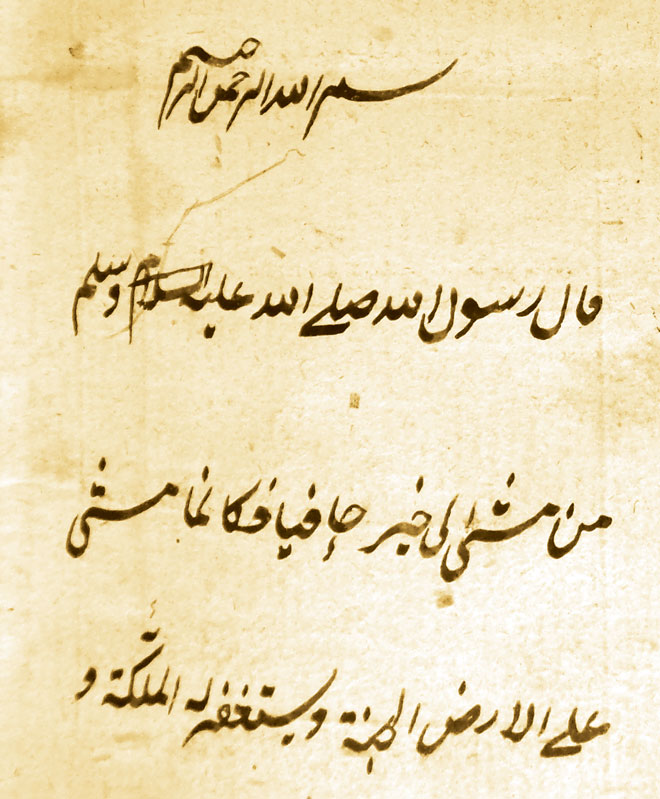 بسم الله الرحمن الرحيم
قال رسول الله صلے الله عليه وسلم
من مشى الى خير حافيا فكانما مشى
علے الارض الجنة ويستغفر له الملئكة و